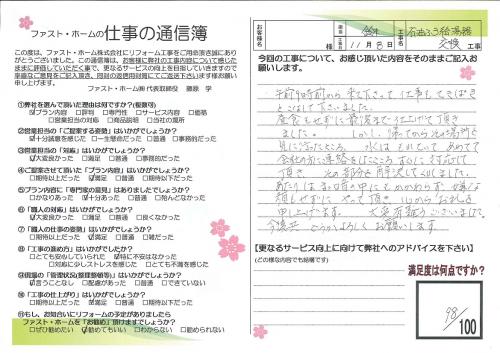 ファスト・ホームの仕事の通信簿
この度は、ファスト・ホーム株式会社にリフォーム工事をご用命頂き誠にあり
がとうございました。この通信簿は、お客様に弊社の工事内容について感じた
ままに評価していただく事で、更なるサービスの向上を目指していきますので
率直なご意見をご記入頂き、同封の返信用封筒にてご返送下さいます様お願い
申し上げます。
ファスト・ホーム㈱ 代表取締役 藤原 学
①弊社を選んで頂いた理由は何ですか?(複数可)
□プラン内容 □評判 □専門性 □サービス内容 □価格
□営業担当の対応 □商品説明 □当社の場所
②営業担当の「ご提案する姿勢」はいかがでしょうか?
□十分誠意を感じた □一生懸命だった □普通 □事務的だった
③営業担当の「対応」はいかがでしょうか?
□大変良かった □満足 □普通 □事務的だった
④ご提案させて頂いた「プラン内容」はいかがでしょうか?
□期待以上だった □満足 □普通 □期待以下だった
⑤プラン内容に「専門家の意見」はありましたでしょうか?
□かなりあった □十分あった □普通 □殆どなかった
⑥「職人の対応」はいかがでしょうか?
□大変良かった □満足 □普通 □良くなかった
⑦「職人の仕事の姿勢」はいかがでしょうか?
□期待以上だった □満足 □普通 □雑だった
⑧「工事の進め方」はいかがでしたか?
□とても安心していられた □特に不安はなかった
□対応に少しストレスを感じた □とても不満を感じた
⑨現場の「管理状況(整理整頓等)」はいかがでしょうか?
□言うことなし □配慮があった □普通 □不愉快だった
⑩「工事の仕上がり」はいかがでしょうか?
□期待以上だった □満足 □普通 □期待以下だった
⑪もし、お知合いにリフォームの予定がありましたら
ファスト・ホームを「お勧め」頂けますでしょうか?
□ぜひ勧めたい □勧めてもいい □わからない □勧められない
お客様名 様
11月8日
工事名 石油ふろ給湯器
交換 工事
今回の工事について、お感じ頂いた内容をそのままご記入お
願いします。
午前9時前から来て下さって仕事もてきぱきと
こなして下さいました。
昼食もせずに最後まで仕上げて頂き
ました。しかし、帰ってから
水はもれていて あわてて
会社の方に連絡をしたところすぐに対応して
頂き
あたりはまっ暗の中にもかかわらず、嫌な
顔もせずに やって頂き 心からお礼を
申し上げます。大変有難うございました。
今後共 どうかよろしくお願いします。
【更なるサービス向上に向けて弊社へのアドバイスを下さい】
(どの様な内容でも結構です)
満足度は何点ですか?
98/100